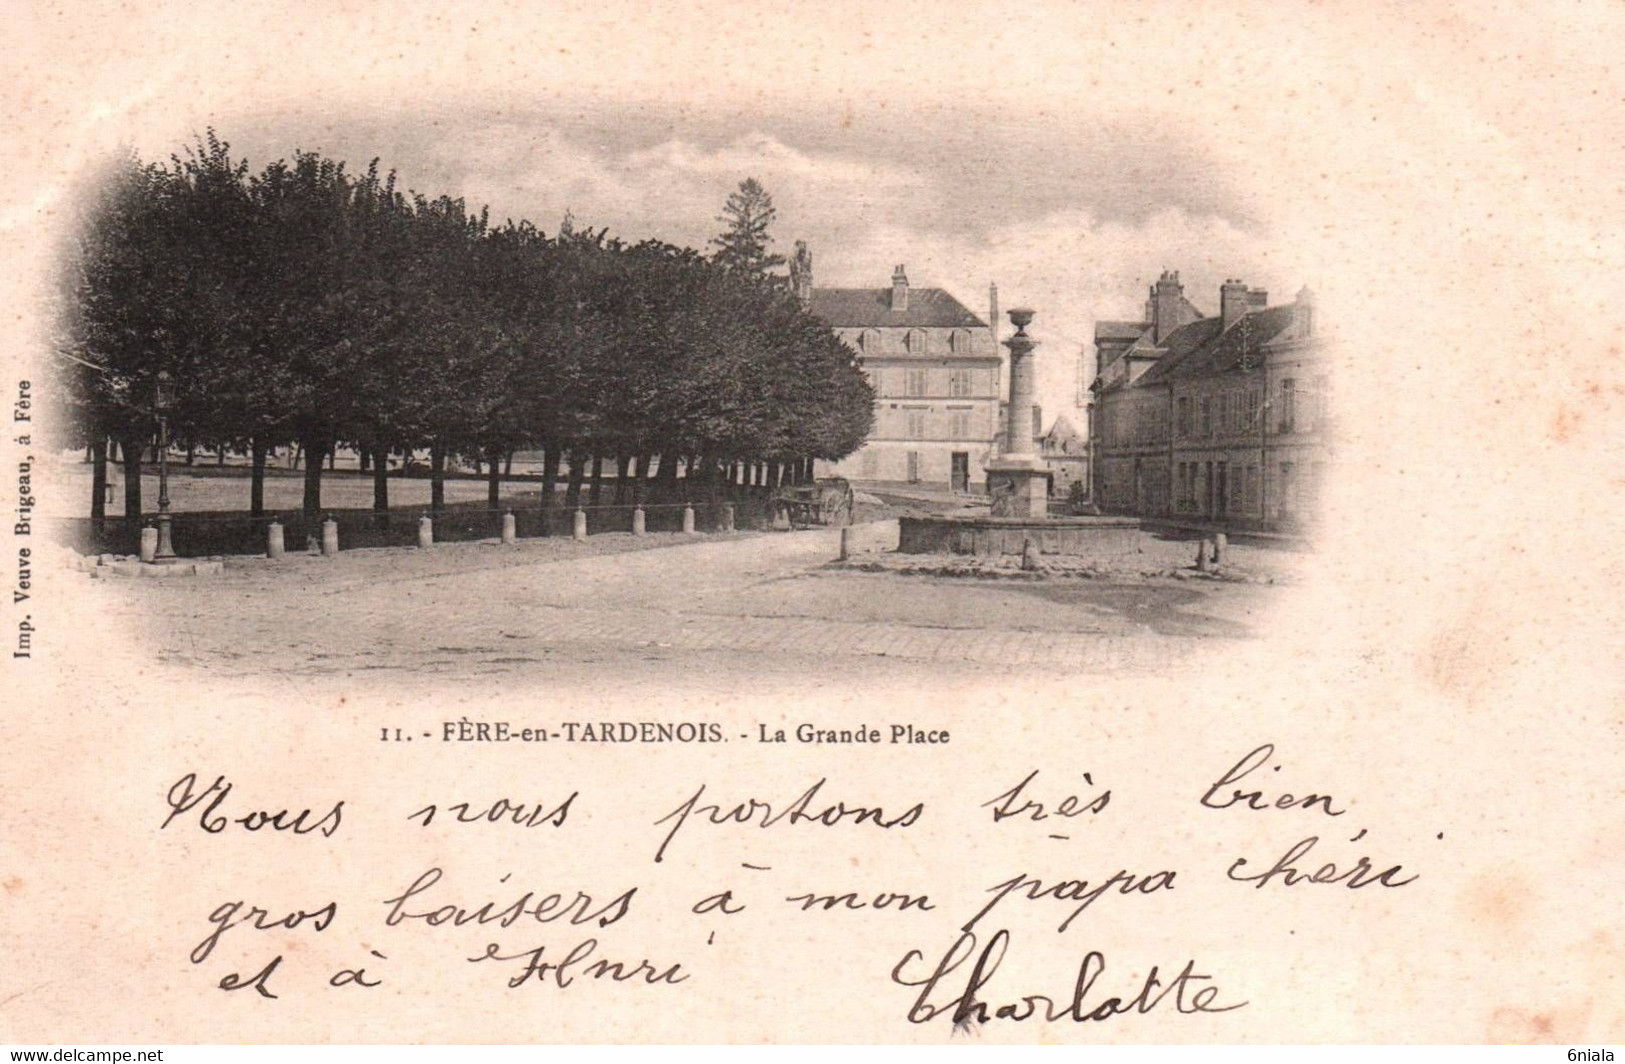 Imp. Veuve Brigeau, à Fère
11. - FÈRE-en-TARDENOIS. - La Grande Place
Nous nous portons très bien,
gros baisers à mon papa chéri
et à Henri
Charlotte
www.delcampe.net
6niala